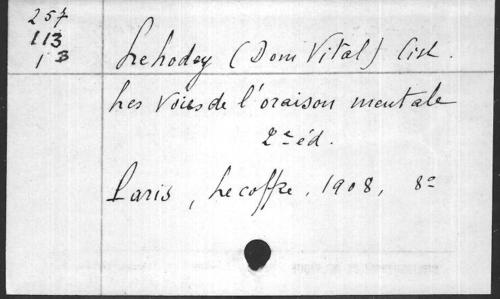 257
113
1 B
Lehodey (Dom Vital) Cist.
Les Voies de l'oraison mentale
2e éd.
Paris, Lecoffre, 1908, 8o